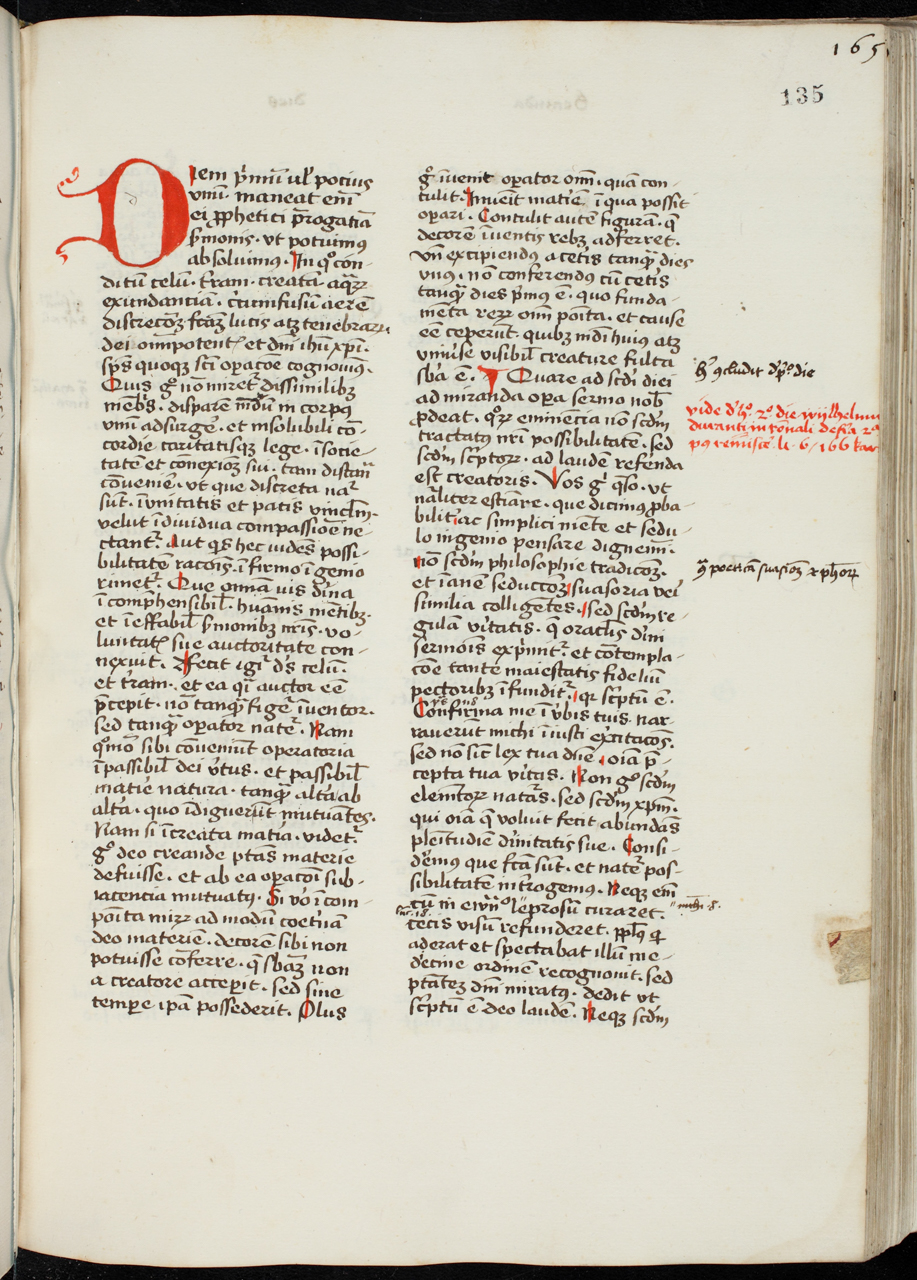 165
135
Diem p̄mū ul' pocius
vnū. maneat em̄
ei ꝓphetici p̄rogatīa
s̄monis. vt potuimꝰ
absoluimꝰ. In qͦ con-
ditū celū. t̄ram. creatā aqꝝ
exundanciā. c̄cūfusū aerē
discretōꝫ fc̄aꝫ lucis atqꝫ tenebraꝝ
dei om̄ipotent̄ et dn̄i ih̄u xp̄i.
sp̄s quoqꝫ sc̄i op̄acōe cognouimꝰ.
Quis gͦ nō miret̄ dissimilibꝫ
mēbr̄s. disparē mūdū in corpꝰ
vnū adsurgē. et insolubili cō-
cordie caritatisqꝫ lege. ī socie-
tatē et cōnexiōꝫ sui. tam distan̄
cōueniē. vt que discreta nat̄
sūt. ī vnitatis et pacis vincl̄m.
velut īdiuidua compassiōe ne-
ctant̄. Aut qͥs hec uidēs possi-
bilitatē rac̄ois. ī firmo īgenio
rimet̄. Que om̄ia uis diūa
īcomp̄hensibil'. huāis mentibꝫ.
et ī effabil' s̄monibꝫ nr̄is. vo-
luntat̄ sue auctoritate con-
nexuit. Fecit igͥ d̄s celū.
et t̄ram. et ea qͥ auctor eē
p̄cepit. nō tanqͣ figē īuentor.
sed tanqͣ operator nat̄e. Nam
qͦmō sibi cōueniūt operatoria
īpassibil' dei v̄tus. et passibil'
matie natura. tanqͣ alt̄a ab
alt̄a. quo īdiguerūt mutuātes.
Nam si īcreata mat̄ia. videt̄
gͦ deo creande ptās materie
defuisse. et ab ea op̄acōī sub-
iacencia mutuatꝰ. Si v̄o īcom-
poīta mirꝝ ad modū coet̄nā
deo materiē. decorē sibi non
potuisse cōferre. q̄ sbāꝫ non
a creatore accep̄it. sed sine
tempere ip̄am possederit. Plus
gͦ īuenit op̄ator om̄i. quā con-
tulit. Inueit matiē ī qua possit
op̄ari. Contulit autē figurā. q̄
decorē īuentis rebꝫ adferret.
Vn̄ excipiendꝰ a cet̄is tanqͣ dies
vnꝰ. nō conferendꝰ cū cet̄is
tanqͣ dies p̄mꝰ ē. quo funda-
mēta reꝝ om̄ poīta. et cause
eē ceperūt. quibꝫ mūdi huiꝰ atqꝫ
vniuse visibil' creature fulta
sba ē. Quare ad sc̄di diei
ad miranda op̄a sermo nob̄
ꝓdeat. qͦꝝ eminēcia nō scd̄m
tractatꝰ nr̄i possibilitatē. sed
scd̄m sc̄ptoꝝ. ad laudē refēnda
est creatoris. Vos gͦ qͣo. vt
nāliter estiare. que dicimꝰ ꝓba-
bilit̄. ac simplici mēte et sedu-
lo ingenio pensare dignemī.
nō scd̄m philosophie tradicōꝫ.
et ī anē seductōꝫ suasoria vei
similia colligētes. sed scd̄m re-
gulā v̄itatis. q̄ oracl̄is diūi
sermōis exp̄mit̄. et cōtempla-
cōe tante maiestatis fideliū
pectoribꝫ ī fundit̄. qꝛ sc̄ptū ē.
Confirma me ī v̄bis tuis. nar-
rauerūt michi ī iusti ex̄citacōs.
sed nō sic lex tua dn̄e. oīa p̄-
cepta tua v̄itas. Non gͦ scd̄m
elemētoꝝ natās. sed scd̄m xp̄m.
qui oīa q̄ voluit fecit abundās
plēitudiē diuitatis sue. Consi-
dēmus que fc̄a sūt. et nat̄e pos-
sibilitatē introgemꝰ. Neqꝫ em̄
cū ī ewn̄º leprosū curaret.
cecis visū refunderet. ppl̄s qͥ
aderat et spectabat illū me-
decine ordinē recognouit. sed
ptāteꝫ dn̄i miratꝰ. dedit vt
sc̄ptū ē deo laudē. Neqꝫ scd̄m
h̄ ꝯcludit d' pͦ die
vide d' h̄ 2ͦ die wylhelmū
durantī in rōnali
li. 6
ꝯ poeticā suasioꝫ